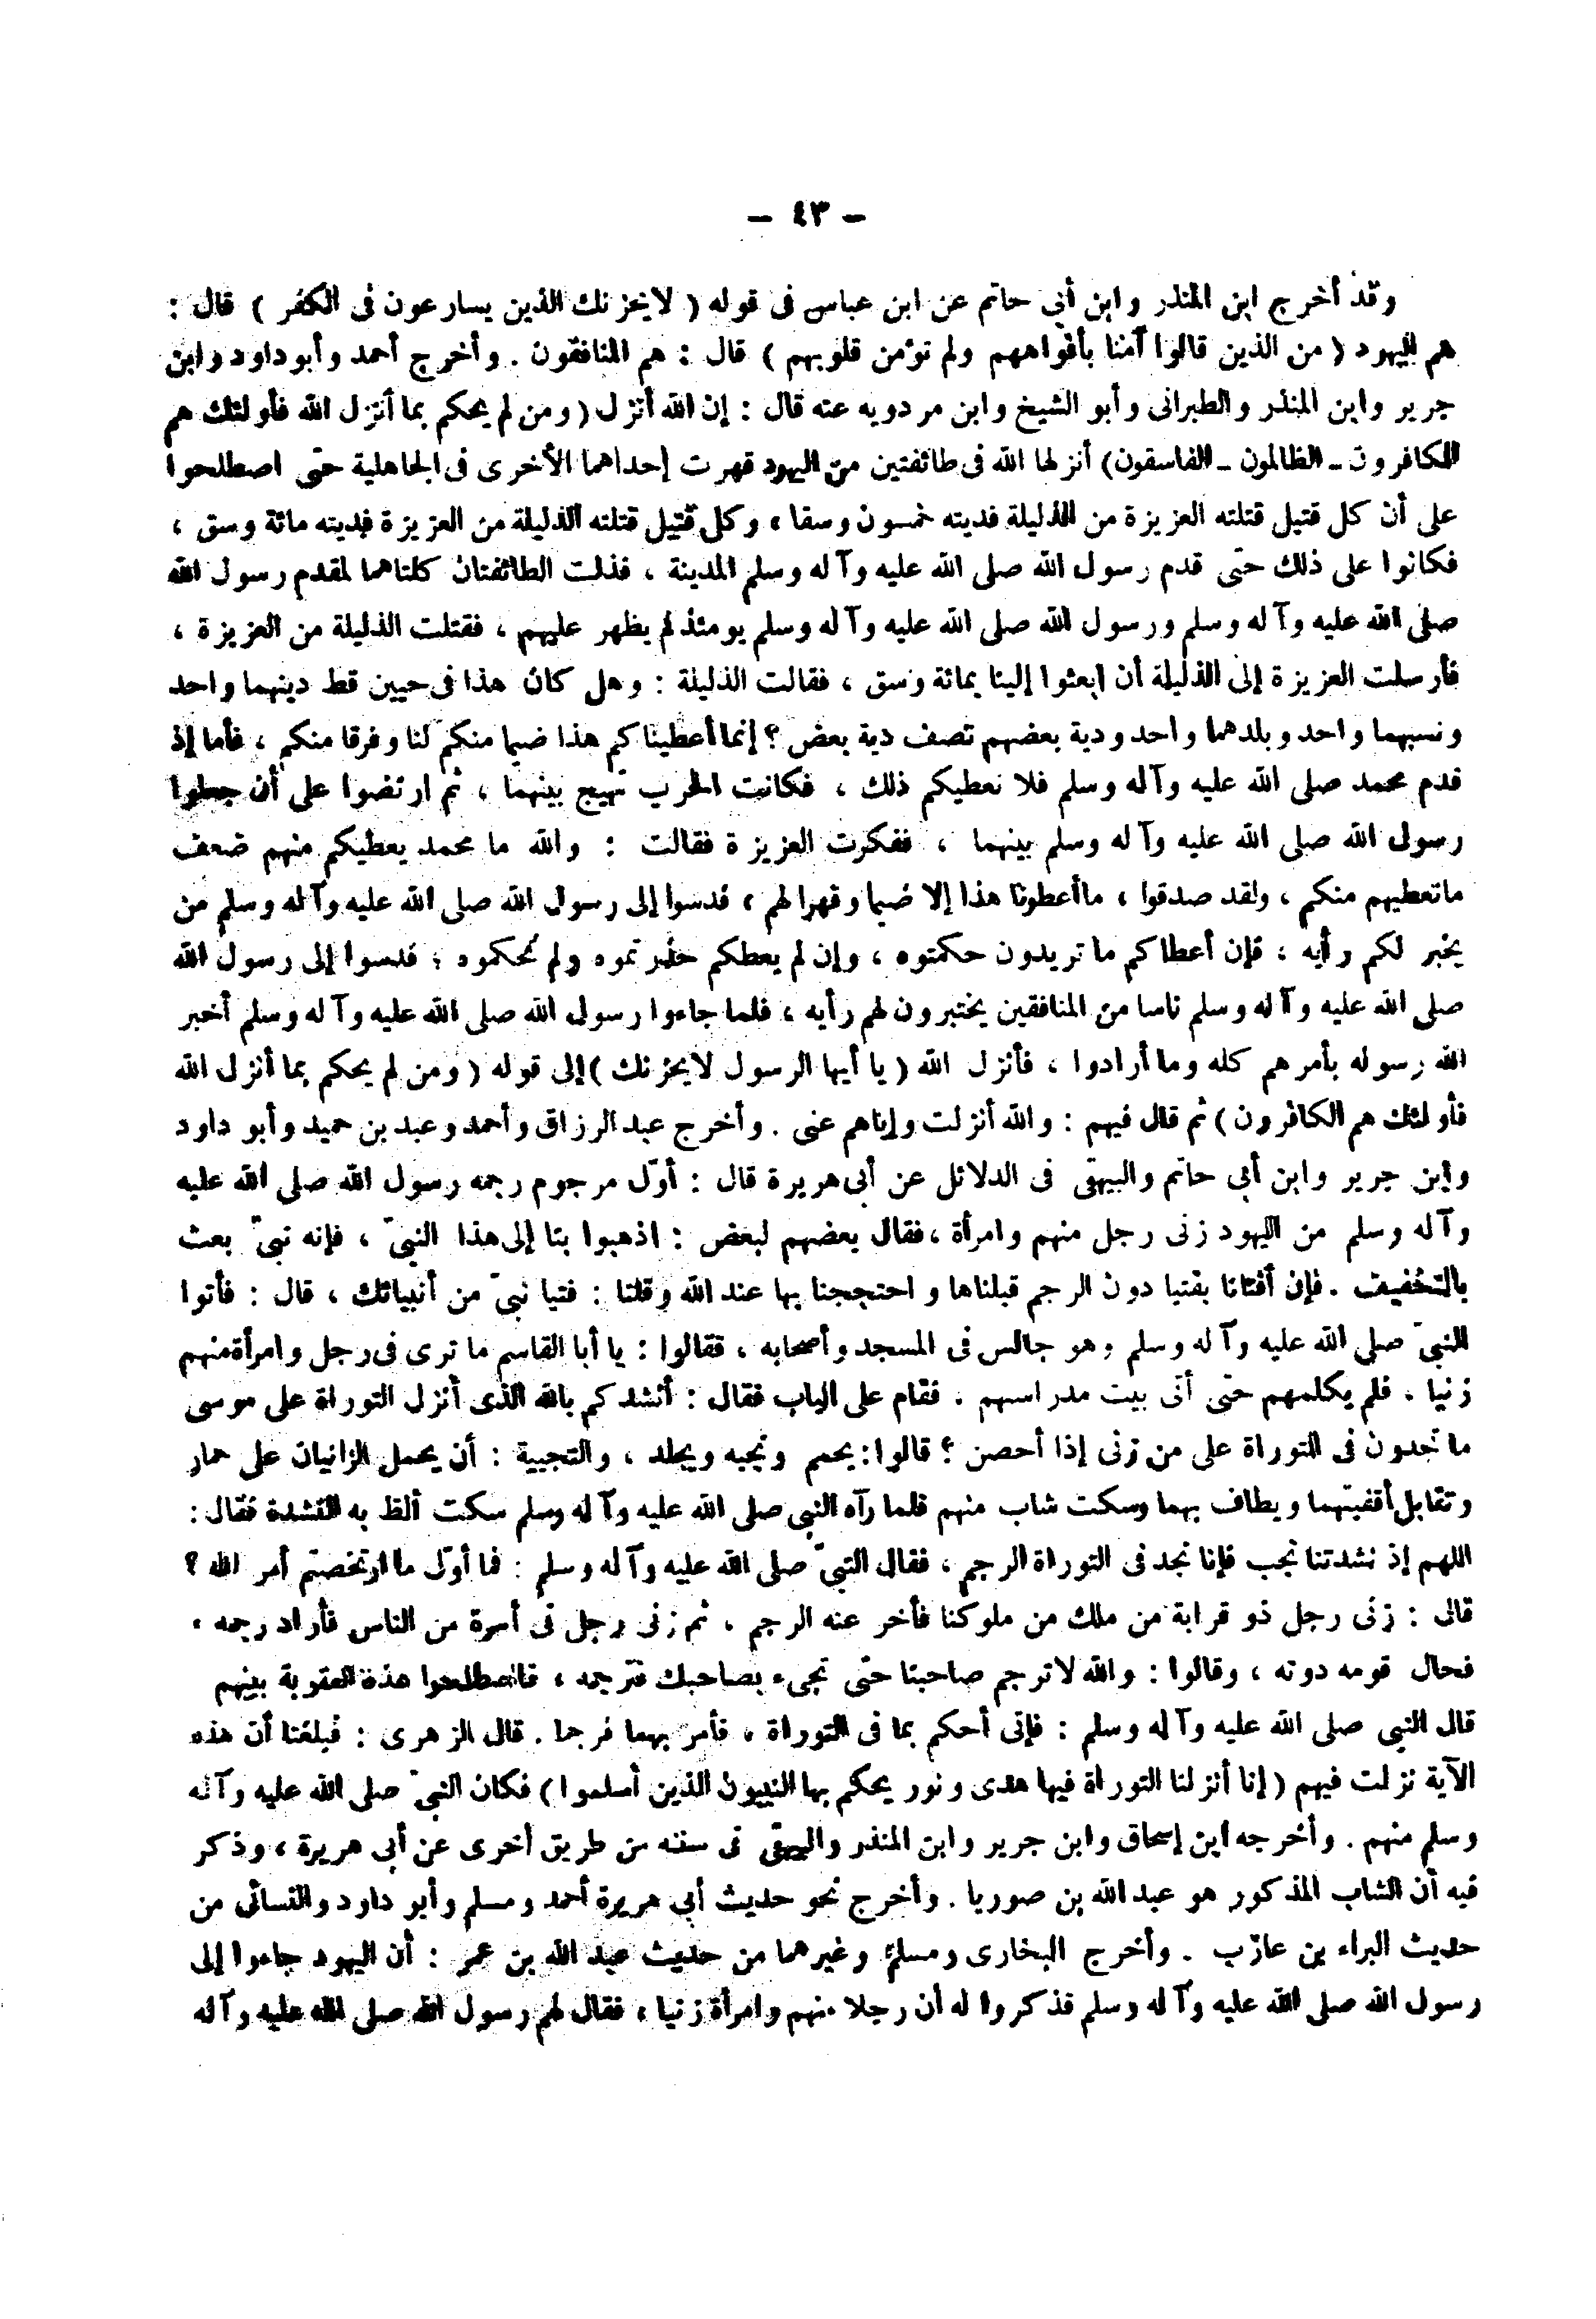 - ٤٣ -
وقد أخرج ابن المنذر وابن أبي حاتم عن ابن عباس فى قوله ( لايحزنك الذين يسارعون فى الكفر ) قال :
هم اليهود ( من الذين قالوا آمنا بأفواههم ولم تؤمن قلوبهم ) قال : هم المنافقون . وأخرج أحمد وأبو داود وابن
جرير وابن المنذر والطبرانى وأبو الشيخ وابن مردويه عنه قال : إن الله أنزل ( ومن لم يحكم بما أنزل الله فأولئك هم
الكافرون - الظالمون - الفاسقون ) أنزلها الله فى طائفتين من اليهود قهرت إحداهما الأخرى فى الجاهلية حتى اصطلحوا
على أن كل قتيل قتلته العزيزة من الذليلة فديته خمسون وسقا ، وكل قتيل قتلته الذليلة من العزيزة فديته مائة وسق ،
فكانوا على ذلك حتى قدم رسول الله صلى الله عليه وآله وسلم المدينة ، فذلت الطائفتان كلتاهما لمقدم رسول الله
صلى الله عليه وآله وسلم ورسول الله صلى الله عليه وآله وسلم يومئذ لم يظهر عليهم ، فقتلت الذليلة من العزيزة ،
فأرسلت العزيزة إلى الذليلة أن ابعثوا إلينا بمائة وسق ، فقالت الذليلة : وهل كان هذا فى حيين قط دينهما واحد
ونسبهما واحد وبلدهما واحد ودية بعضهم نصف دية بعض ؟ إنما أعطيناكم هذا ضيما منكم لنا وفرقا منكم ، فأما إذ
قدم محمد صلى الله عليه وآله وسلم فلا نعطيكم ذلك ، فكانت الحرب تهيج بينهما ، ثم ارتضوا على أن جعلوا
رسول الله صلى الله عليه وآله وسلم بينهما ، ففكرت العزيزة فقالت : والله ما محمد يعطيكم منهم ضعف
ماتعطيهم منكم ، ولقد صدقوا ، ماأعطونا هذا إلا ضيما وقهرا لهم ، فدسوا إلى رسول الله صلى الله عليه وآله وسلم من
يخبر لكم رأيه ، فإن أعطاكم ما تريدون حكمتوه ، وإن لم يعطكم حذرتموه ولم تحكموه ؛ فدسوا إلى رسول الله
صلى الله عليه وآله وسلم ناسا من المنافقين يختبرون لهم رأيه ، فلما جاءوا رسول الله صلى الله عليه وآله وسلم أخبر
الله رسوله بأمرهم كله وما أرادوا ، فأنزل الله ( يا أيها الرسول لايحزنك ) إلى قوله ( ومن لم يحكم بما أنزل الله
فأولئك هم الكافرون ) ثم قال فيهم : والله أنزلت وإياهم عنى . وأخرج عبد الرزاق وأحمد وعبد بن حميد وأبو داود
وابن جرير وابن أبي حاتم والبيهقى فى الدلائل عن أبى هريرة قال : أوّل مرجوم رجمه رسول الله صلى الله عليه
وآله وسلم من اليهود زنى رجل منهم وامرأة ، فقال بعضهم لبعض : اذهبوا بنا إلى هذا النبىّ ، فإنه نبىّ بعث
بالتخفيف . فإن أفتانا بفتيا دون الرجم قبلناها واحتججنا بها عند الله وقلنا : فتيا نبىّ من أنبيائك ، قال : فأتوا
النبىّ صلى الله عليه وآله وسلم وهو جالس فى المسجد وأصحابه ، فقالوا : يا أبا القاسم ما ترى فى رجل وامرأة منهم
زنيا . فلم يكلمهم حتى أتى بيت مدراسهم . فقام على الباب فقال : أنشدكم بالله الذى أنزل التوراة على موسى
ما تجدون فى التوراة على من زنى إذا أحصن ؟ قالوا : يحمم ونجبه ويجلد ، والتجبية : أن يحمل الزانيان على حمار
وتقابل أقفيتهما ويطاف بهما وسكت شاب منهم فلما رآه النبى صلى الله عليه وآله وسلم سكت ألظ به النشدة فقال :
اللهم إذ نشدتنا نجب فإنا نجد فى التوراة الرجم ، فقال النبىّ صلى الله عليه وآله وسلم : فما أوّل ما ارتخصتم أمر الله ؟
قال : زنى رجل ذو قرابة من ملك من ملوكنا فأخر عنه الرجم ، ثم زنى رجل فى أسرة من الناس فأراد رجمه ،
فحال قومه دونه ، وقالوا : والله لاترجم صاحبنا حتى تجىء بصاحبك فترجمه ، فاصطلحوا هذه العقوبة بينهم
قال النبى صلى الله عليه وآله وسلم : فإنى أحكم بما فى التوراة ، فأمر بهما فرجما . قال الزهرى : فبلغنا أن هذه
الآية نزلت فيهم ( إنا أنزلنا التوراة فيها هدى ونور يحكم بها النبيون الذين أسلموا ) فكان النبىّ صلى الله عليه وآله
وسلم منهم . وأخرجه ابن إسحاق وابن جرير وابن المنذر والبيهقى فى سننه من طريق أخرى عن أبى هريرة ، وذكر
فيه أن الشاب المذكور هو عبد الله بن صوريا . وأخرج نحو حديث أبي هريرة أحمد ومسلم وأبو داود والنسائى من
حديث البراء بن عازب . وأخرج البخارى ومسلم وغيرهما من حديث عبد الله بن عمر : أن اليهود جاءوا إلى
رسول الله صلى الله عليه وآله وسلم فذكروا له أن رجلا منهم وامرأة زنيا ، فقال لهم رسول الله صلى الله عليه وآله